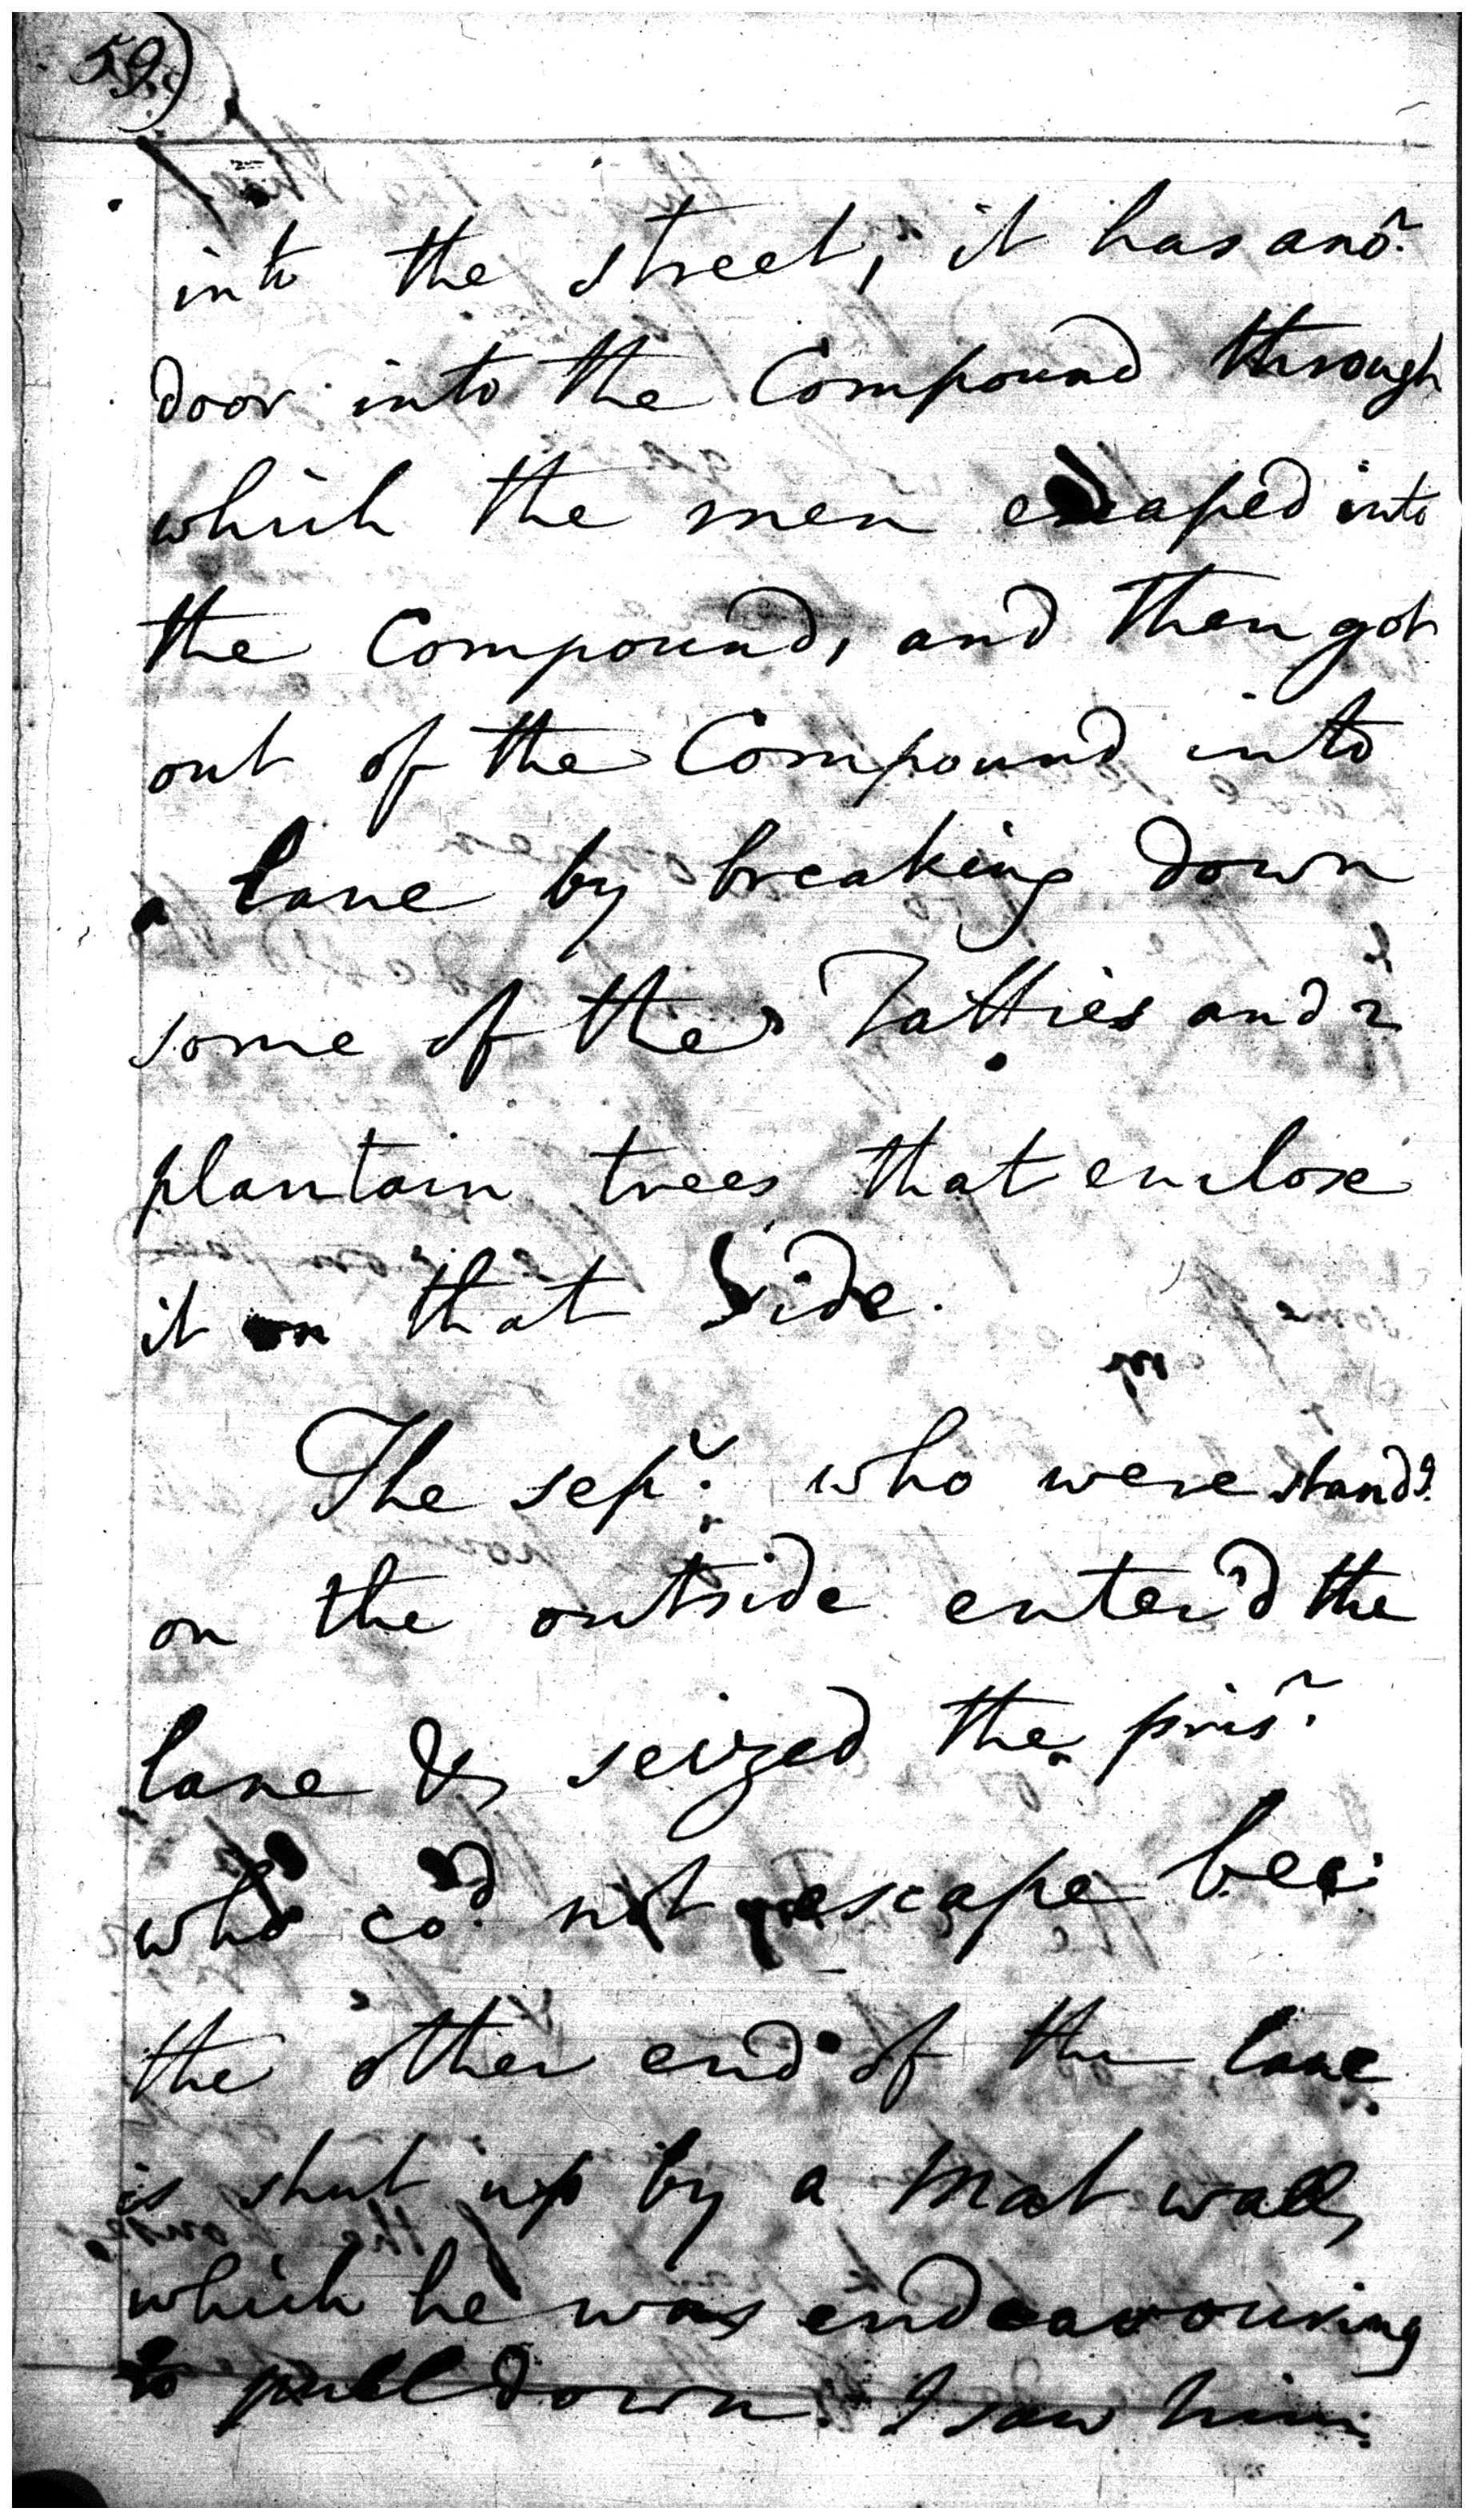 59)
into the street, it has ano.r
door into the Compound through
which the men escaped into
the Compound, and then got
out of the Compound into
a lane by breaking down
some of the Tatties and
plantain trees that enclose
it on that side.
The sep.s who were stand.g
on the outside enter'd the
lane & seized the pris.r
who co.d not escape bec:
the other end of the lane
is shut up by a mat wall,
which he was endeavouring
to pull down. I saw him